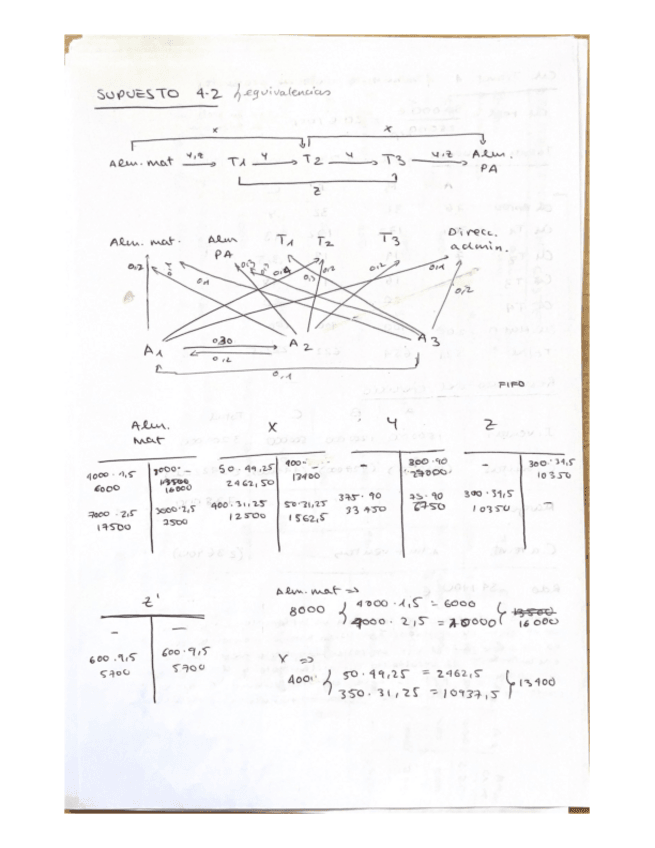 SUPUESTO 4.2 equivalencias
x x
Alm. mat Y,Z T1 Y T2 Y T3 Y,Z Alm. PA
Z
Alm. mat. Alm PA T1 T2 T3 Direcc. admin.
0,1 0,4 0,2 0,1
0,2
A1 0,30 A2 A3
0,2
0,1
FIFO
Alm. mat X Y Z
4000 · 1,5 8000 · - 50 · 49,25 400 · - - 300 · 90 - 300 · 34,5
6000 13500 2462,50 13400 27000 10350
16000
7000 · 2,5 3000 · 2,5 400 · 31,25 50 · 31,25 375 · 90 75 · 90 300 · 34,5 -
17500 12500 1562,5 33750 6750 10350
Z'
- -
600 · 9,5 600 · 9,5
5700 5700
Alm. mat =>
8000 { 4000 · 1,5 = 6000
4000 · 2,5 = 10000 } 13500 16000
X =>
400 { 50 · 49,25 = 2462,5
350 · 31,25 = 10937,5 } 13400